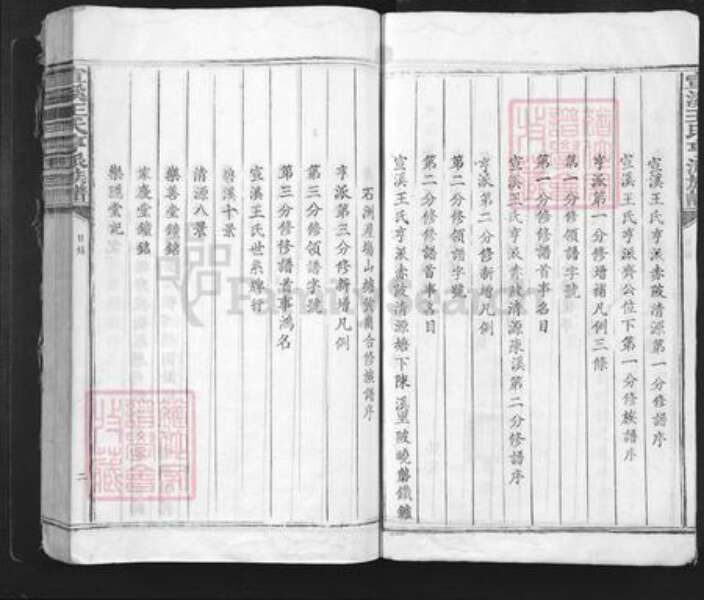 宣溪王氏亨派赤陂清源第一分修譜序
宣溪王氏亨派齊公位下第一分修族譜序
亨派第一分修增補凡例三條
第一分修領譜字號
第一分修修譜首事名目
宣溪王氏亨派赤陂清源陳溪第二分修譜序
亨派第二分修新增凡例
第二分修領譜字號
第二分修修譜首事名目
宣溪王氏亨派赤陂清源塘下陳溪里陂曉磜鐵鑪
石洲山合修族譜序
亨派第三分修新增凡例
第三分修領譜字號
第三分修修譜首事鴻名
宣溪王氏世系牌行
溪十景
清源八景
樂善堂鐘銘
家慶堂鐘銘
樂堂記
宣溪王氏亨派族譜
目錄
二
FamilySearch